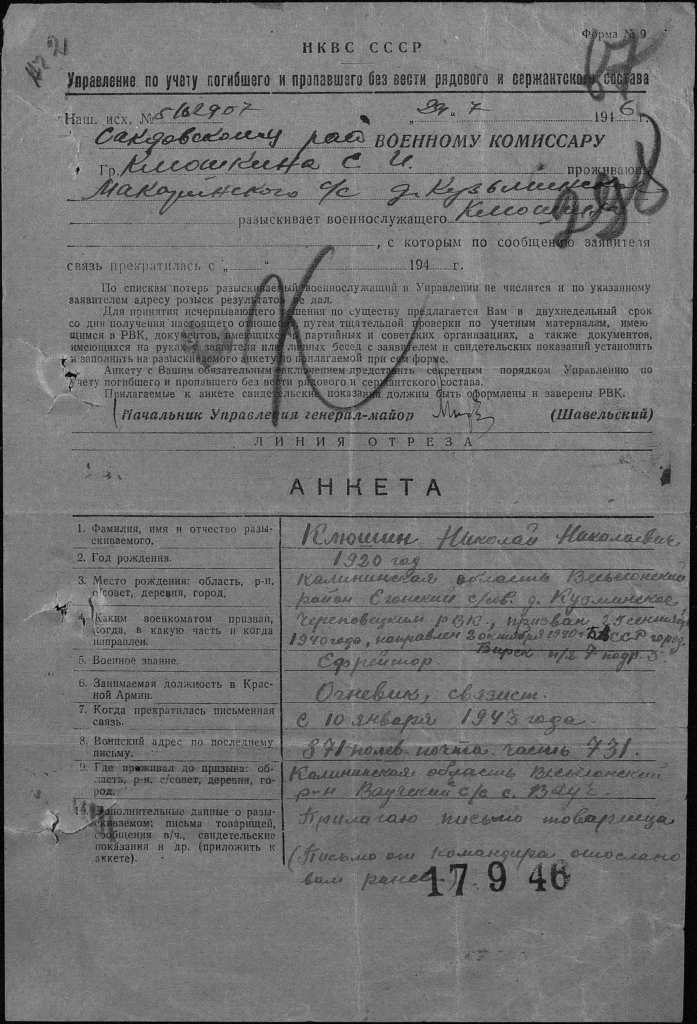 Форма № 9
67
НКВС СССР
Управление по учету погибшего и пропавшего без вести рядового и сержантского состава
Наш. исх. № 5/62907 „29“ 7 1946 г.
Сандовскому рай ВОЕННОМУ КОМИССАРУ
Гр. Клюшкина С. И. проживающ
Макаринского с/с д. Кузьминское
разыскивает военнослужащего Клюшина
, с которым по сообщению заявителя
связь прекратилась с „ “ 194 г.
По спискам потерь разыскиваемый военнослужащий в Управлении не числится и по указанному
заявителем адресу розыск результатов не дал.
Для принятия исчерпывающего решения по существу предлагается Вам в двухнедельный срок
со дня получения настоящего отношения, путем тщательной проверки по учетным материалам, имею-
щимся в РВК, документов, имеющихся в партийных и советских организациях, а также документов,
имеющихся на руках у заявителя или личных бесед с заявителем и свидетельских показаний установить
и заполнить на разыскиваемого анкету по прилагаемой при сем форме.
Анкету с Вашим обязательным заключением представить секретным порядком Управлению по
учету погибшего и пропавшего без вести рядового и сержантского состава.
Прилагаемые к анкете свидетельские показания должны быть оформлены и заверены РВК.
Начальник Управления генерал-майор (Шавельский)
ЛИНИЯ ОТРЕЗА
АНКЕТА
1. Фамилия, имя и отчество разы-
скиваемого.
Клюшин Николай Николаевич
2. Год рождения.
1920 год
3. Место рождения: область, р-н,
с/совет, деревня, город.
Калининская область Весьегонский
район Егонский с/сов. д. Кузминское
4. Каким военкоматом призван,
когда, в какую часть и когда
направлен.
Череповецким РВК, призван 25 сентября
1940 года, направлен 2 октября 1940 г. БССР город
п/я 7 подр. 3
5. Военное звание.
Ефрейтор
6. Занимаемая должность в Крас-
ной Армии.
Огневик, связист.
7. Когда прекратилась письменная
связь.
с 10 января 1943 года.
8. Воинский адрес по последнему
письму.
871 полев. почта часть 731.
9. Где проживал до призыва: об-
ласть, р-н, с/совет, деревня, го-
род.
Калининская область Весьегонский
р-н с/с с.
10. Дополнительные данные о разы-
скиваемом: письма товарищей,
сообщения в/ч., свидетельские
показания и др. (приложить к
анкете).
Прилагаю письмо товарища
(Письмо от командира отослано
вам ранее)
17 9 46